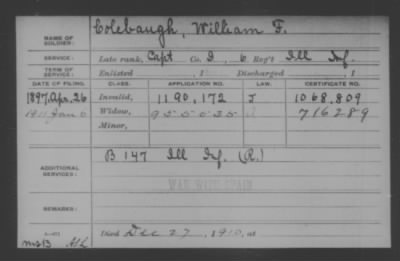 Colebaugh, William F.
NAME OF SOLDIER:
SERVICE: Late rank, Capt Co. D, 6 Reg't Ill Inf.
TERM OF SERVICE: Enlisted , 1 Discharged , 1
DATE OF FILING. CLASS. APPLICATION NO. LAW. CERTIFICATE NO.
1897, Apr. 26 Invalid, 1190,172 J 1068,809
1911 Jan 6 Widow, 955035 716289
Minor,
B 147 Ill Inf. (R.)
ADDITIONAL SERVICES:
WAR WITH SPAIN
REMARKS:
Died Dec 27, 1910, at